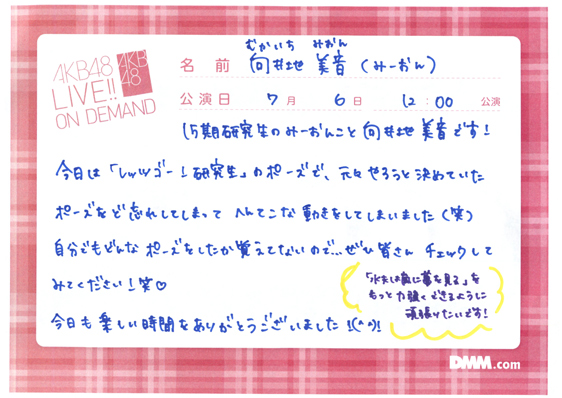 AKB48
LIVE!!
ON DEMAND
AKB
48
むかいち みおん
名前 向井地 美音 (みーおん)
公演日 7月 6日 12:00 公演
15期研究生のみーおんこと向井地美音です!
今日は「レッツゴー!研究生」のポーズで、元々やろうと決めていた
ポーズをど忘れしてしまって へんてこな動きをしてしまいました(笑)
自分でもどんなポーズをしたか覚えてないので…ぜひ皆さん チェックして
みてください!笑♡
「水夫は嵐に夢を見る」を
もっと力強くできるように
頑張りたいです!
今日も楽しい時間をありがとうございました!(^^)!
DMM.com